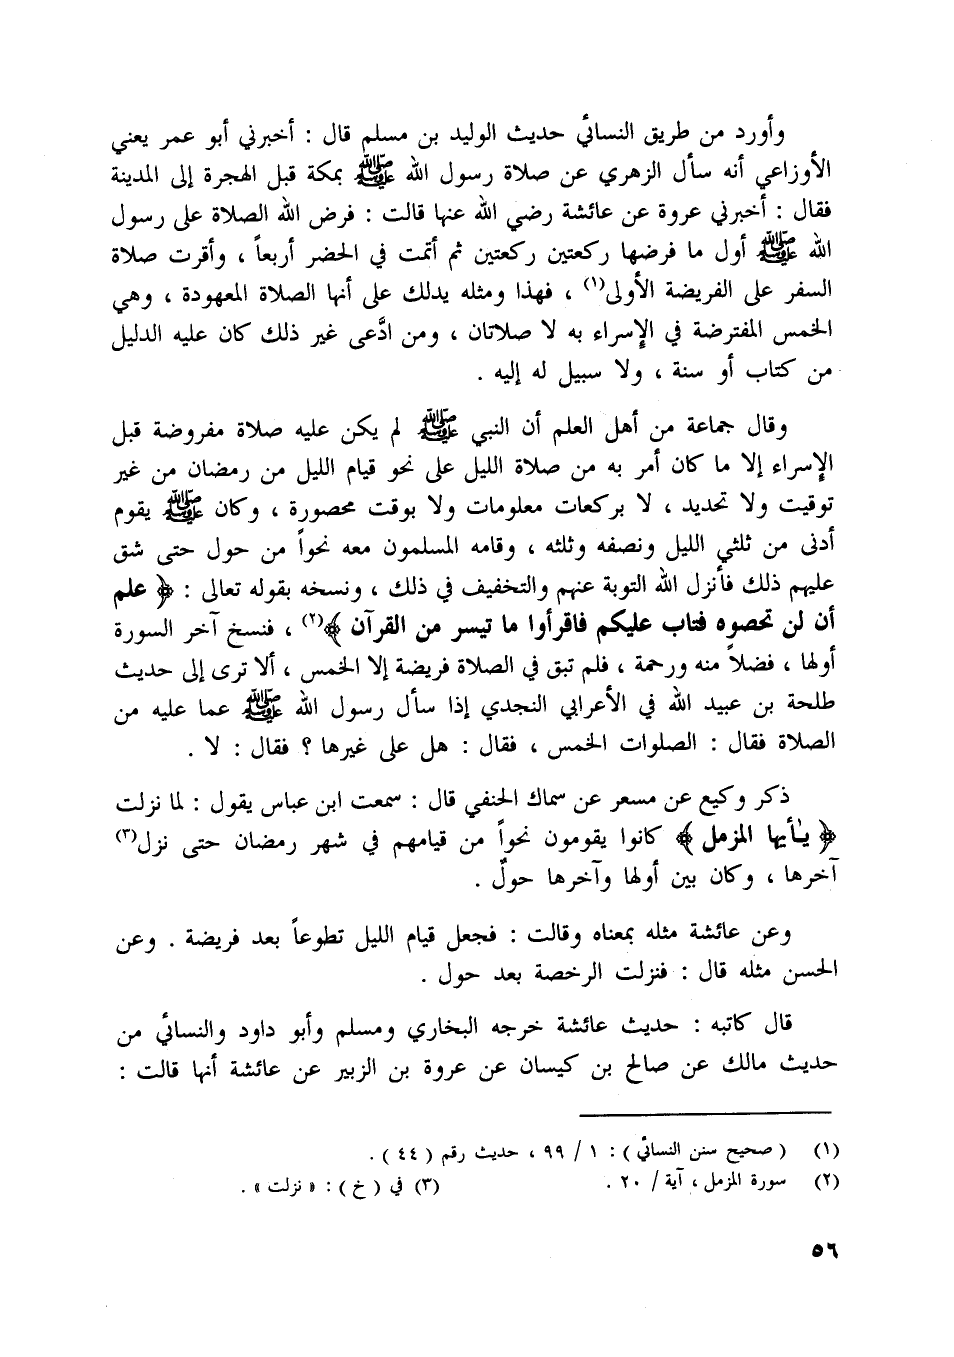 وأورد من طريق النسائي حديث الوليد بن مسلم قال : أخبرني أبو عمر يعني
الأوزاعي أنه سأل الزهري عن صلاة رسول الله ﷺ بمكة قبل الهجرة إلى المدينة
فقال : أخبرني عروة عن عائشة رضي الله عنها قالت : فرض الله الصلاة على رسول
الله ﷺ أول ما فرضها ركعتين ركعتين ثم أتمت في الحضر أربعاً ، وأقرت صلاة
السفر على الفريضة الأولى(١) ، فهذا ومثله يدلك على أنها الصلاة المعهودة ، وهي
الخمس المفترضة في الإسراء به لا صلاتان ، ومن ادَّعى غير ذلك كان عليه الدليل
من كتاب أو سنة ، ولا سبيل له إليه .
وقال جماعة من أهل العلم أن النبي ﷺ لم يكن عليه صلاة مفروضة قبل
الإسراء إلا ما كان أمر به من صلاة الليل على نحو قيام الليل من رمضان من غير
توقيت ولا تحديد ، لا بركعات معلومات ولا بوقت محصورة ، وكان ﷺ يقوم
أدنى من ثلثي الليل ونصفه وثلثه ، وقامه المسلمون معه نحواً من حول حتى شق
عليهم ذلك فأنزل الله التوبة عنهم والتخفيف في ذلك ، ونسخه بقوله تعالى : ﴿ علم
أن لن تحصوه فتاب عليكم فاقرأوا ما تيسر من القرآن ﴾(٢) ، فنسخ آخر السورة
أولها ، فضلاً منه ورحمة ، فلم تبق في الصلاة فريضة إلا الخمس ، ألا ترى إلى حديث
طلحة بن عبيد الله في الأعرابي النجدي إذا سأل رسول الله ﷺ عما عليه من
الصلاة فقال : الصلوات الخمس ، فقال : هل على غيرها ؟ فقال : لا .
ذكر وكيع عن مسعر عن سماك الحنفي قال : سمعت ابن عباس يقول : لما نزلت
﴿ يـٰأيها المزمل ﴾ كانوا يقومون نحواً من قيامهم في شهر رمضان حتى نزل(٣)
آخرها ، وكان بين أولها وآخرها حولٌ .
وعن عائشة مثله بمعناه وقالت : فجعل قيام الليل تطوعاً بعد فريضة . وعن
الحسن مثله قال : فنزلت الرخصة بعد حول .
قال كاتبه : حديث عائشة خرجه البخاري ومسلم وأبو داود والنسائي من
حديث مالك عن صالح بن كيسان عن عروة بن الزبير عن عائشة أنها قالت :
(١) ( صحيح سنن النسائي ) : ١ / ٩٩ ، حديث رقم ( ٤٤ ) .
(٢) سورة المزمل ، آية / ٢٠ . (٣) في ( خ ) : « نزلت » .
٥٦